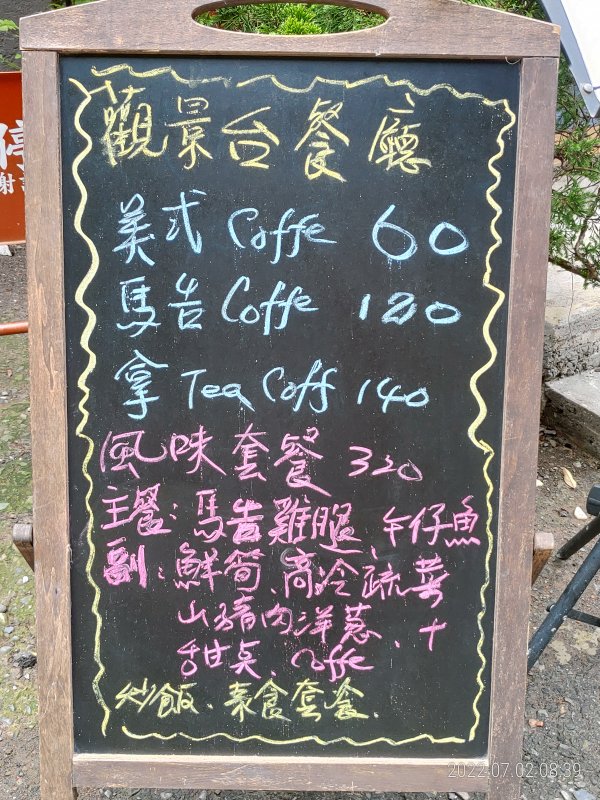 觀景台餐廳
美式 Coffe 60
馬告 Coffe 120
拿 Tea Coff 140
風味套餐 320
主餐:馬告雞腿、午仔魚
副:鮮筍、高冷蔬菜
山豬肉洋蔥、+
甜桌 Coffe
炒飯、素食套餐、
停
謝
2022.07.02 08:39